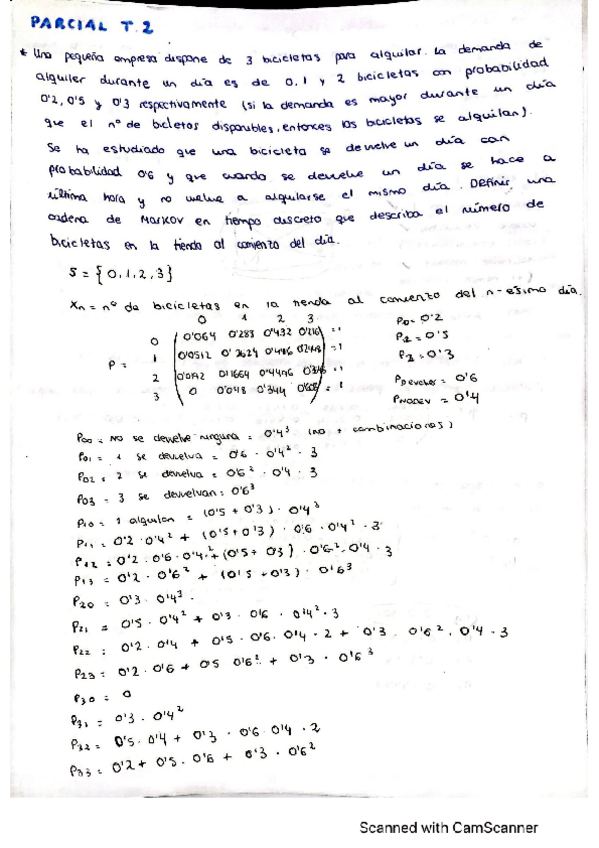 PARCIAL T.2
* Una pequeña empresa dispone de 3 bicicletas para alquilar. La demanda de
alquiler durante un día es de 0, 1 y 2 bicicletas con probabilidad
0'2, 0'5 y 0'3 respectivamente (si la demanda es mayor durante un día
que el nº de bicletas disponibles, entonces las bicicletas se alquilan).
Se ha estudiado que una bicicleta se devuelve un día con
probabilidad 0'6 y que cuando se devuelve un día se hace a
última hora y no vuelve a alquilarse el mismo día. Definir una
cadena de Markov en tiempo discreto que describa el número de
bicicletas en la tienda al comienzo del día.
S = {0, 1, 2, 3}
Xn = nº de bicicletas en la tienda al comienzo del n-esimo día.
0 1 2 3
0 0'064 0'288 0'432 0'216 = 1
1 0'0512 0'2624 0'4 = 1
P =
2 0'0192 0'1664 0'4496 = 1
3 0 0'048 0'344 0'608 = 1
P0 = 0'2
P1 = 0'5
P2 = 0'3
Pdevolver = 0'6
PNODEV = 0'4
P00 = NO se devuelve ninguna = 0'4³ (no + combinaciones)
P01 = 1 se devuelva = 0'6 · 0'4² · 3
P02 = 2 se devuelva = 0'6² · 0'4 · 3
P03 = 3 se devuelvan = 0'6³
P10 = 1 alquilan = (0'5 + 0'3) · 0'4³
P11 = 0'2 · 0'4² + (0'5 + 0'3) · 0'6 · 0'4² · 3
P12 = 0'2 · 0'6 · 0'4 · 2 + (0'5 + 0'3) · 0'6² · 0'4 · 3
P13 = 0'2 · 0'6² + (0'5 + 0'3) · 0'6³
P20 = 0'3 · 0'4³
P21 = 0'5 · 0'4² + 0'3 · 0'6 · 0'4² · 3
P22 = 0'2 · 0'4 + 0'5 · 0'6 · 0'4 · 2 + 0'3 · 0'6² · 0'4 · 3
P23 = 0'2 · 0'6 + 0'5 0'6² + 0'3 · 0'6³
P30 = 0
P31 = 0'3 · 0'4²
P32 = 0'5 · 0'4 + 0'3 · 0'6 · 0'4 · 2
P33 = 0'2 + 0'5 · 0'6 + 0'3 · 0'6²
Scanned with CamScanner